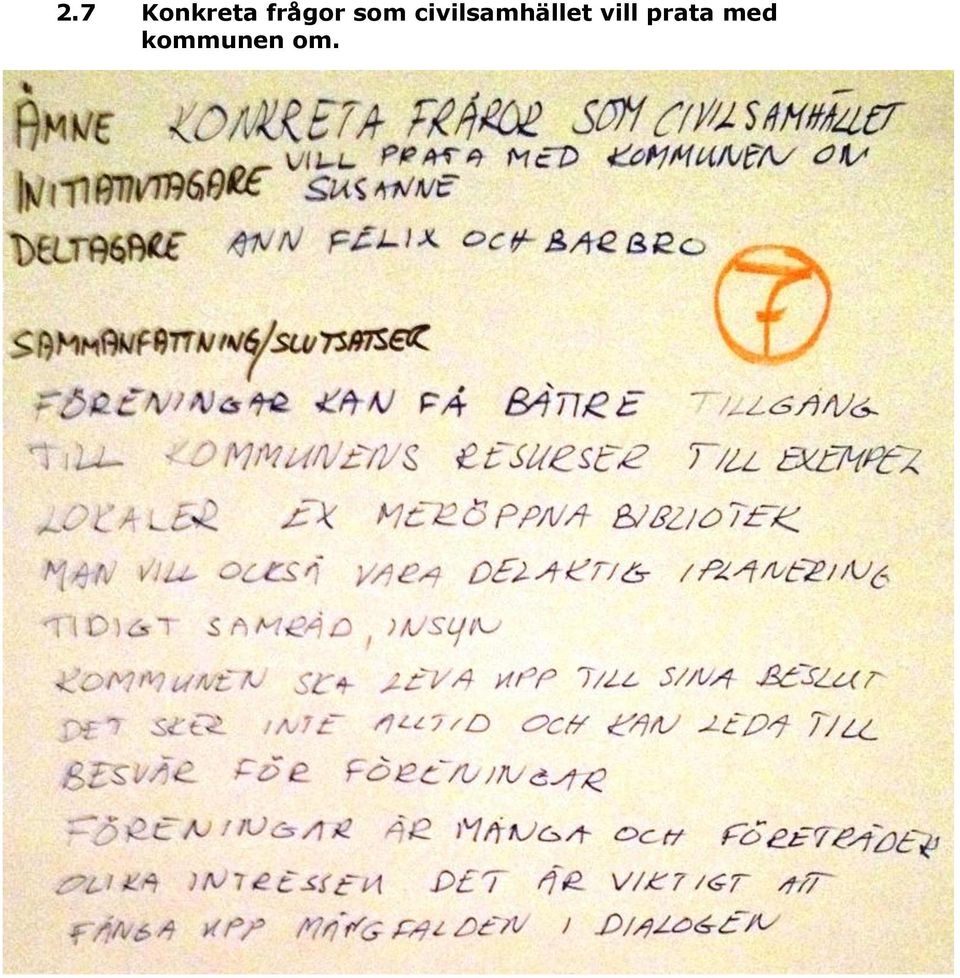 2.7 Konkreta frågor som civilsamhället vill prata med
kommunen om.
ÄMNE KONKRETA FRÅROR SOM CIVILSAMHÄLLET
VILL PRATA MED KOMMUNEN OM
INITIATIVTAGARE SUSANNE
DELTAGARE ANN FELIX OCH BARBRO
7
SAMMANFATTNING/SLUTSATSER
FÖRENINGAR KAN FÅ BÄTTRE TILLGÅNG
TILL KOMMUNENS RESURSER TILL EXEMPEL
LOKALER EX MERÖPPNA BIBLIOTEK
MAN VILL OCKSÅ VARA DELAKTIG I PLANERING
TIDIGT SAMRÅD, INSYN
KOMMUNEN SKA LEVA UPP TILL SINA BESLUT
DET SKER INTE ALLTID OCH KAN LEDA TILL
BESVÄR FÖR FÖRENINGAR
FÖRENINGAR ÄR MÅNGA OCH FÖRETRÄDER
OLIKA INTRESSEN DET ÄR VIKTIGT ATT
FÅNGA UPP MÅNGFALDEN I DIALOGEN